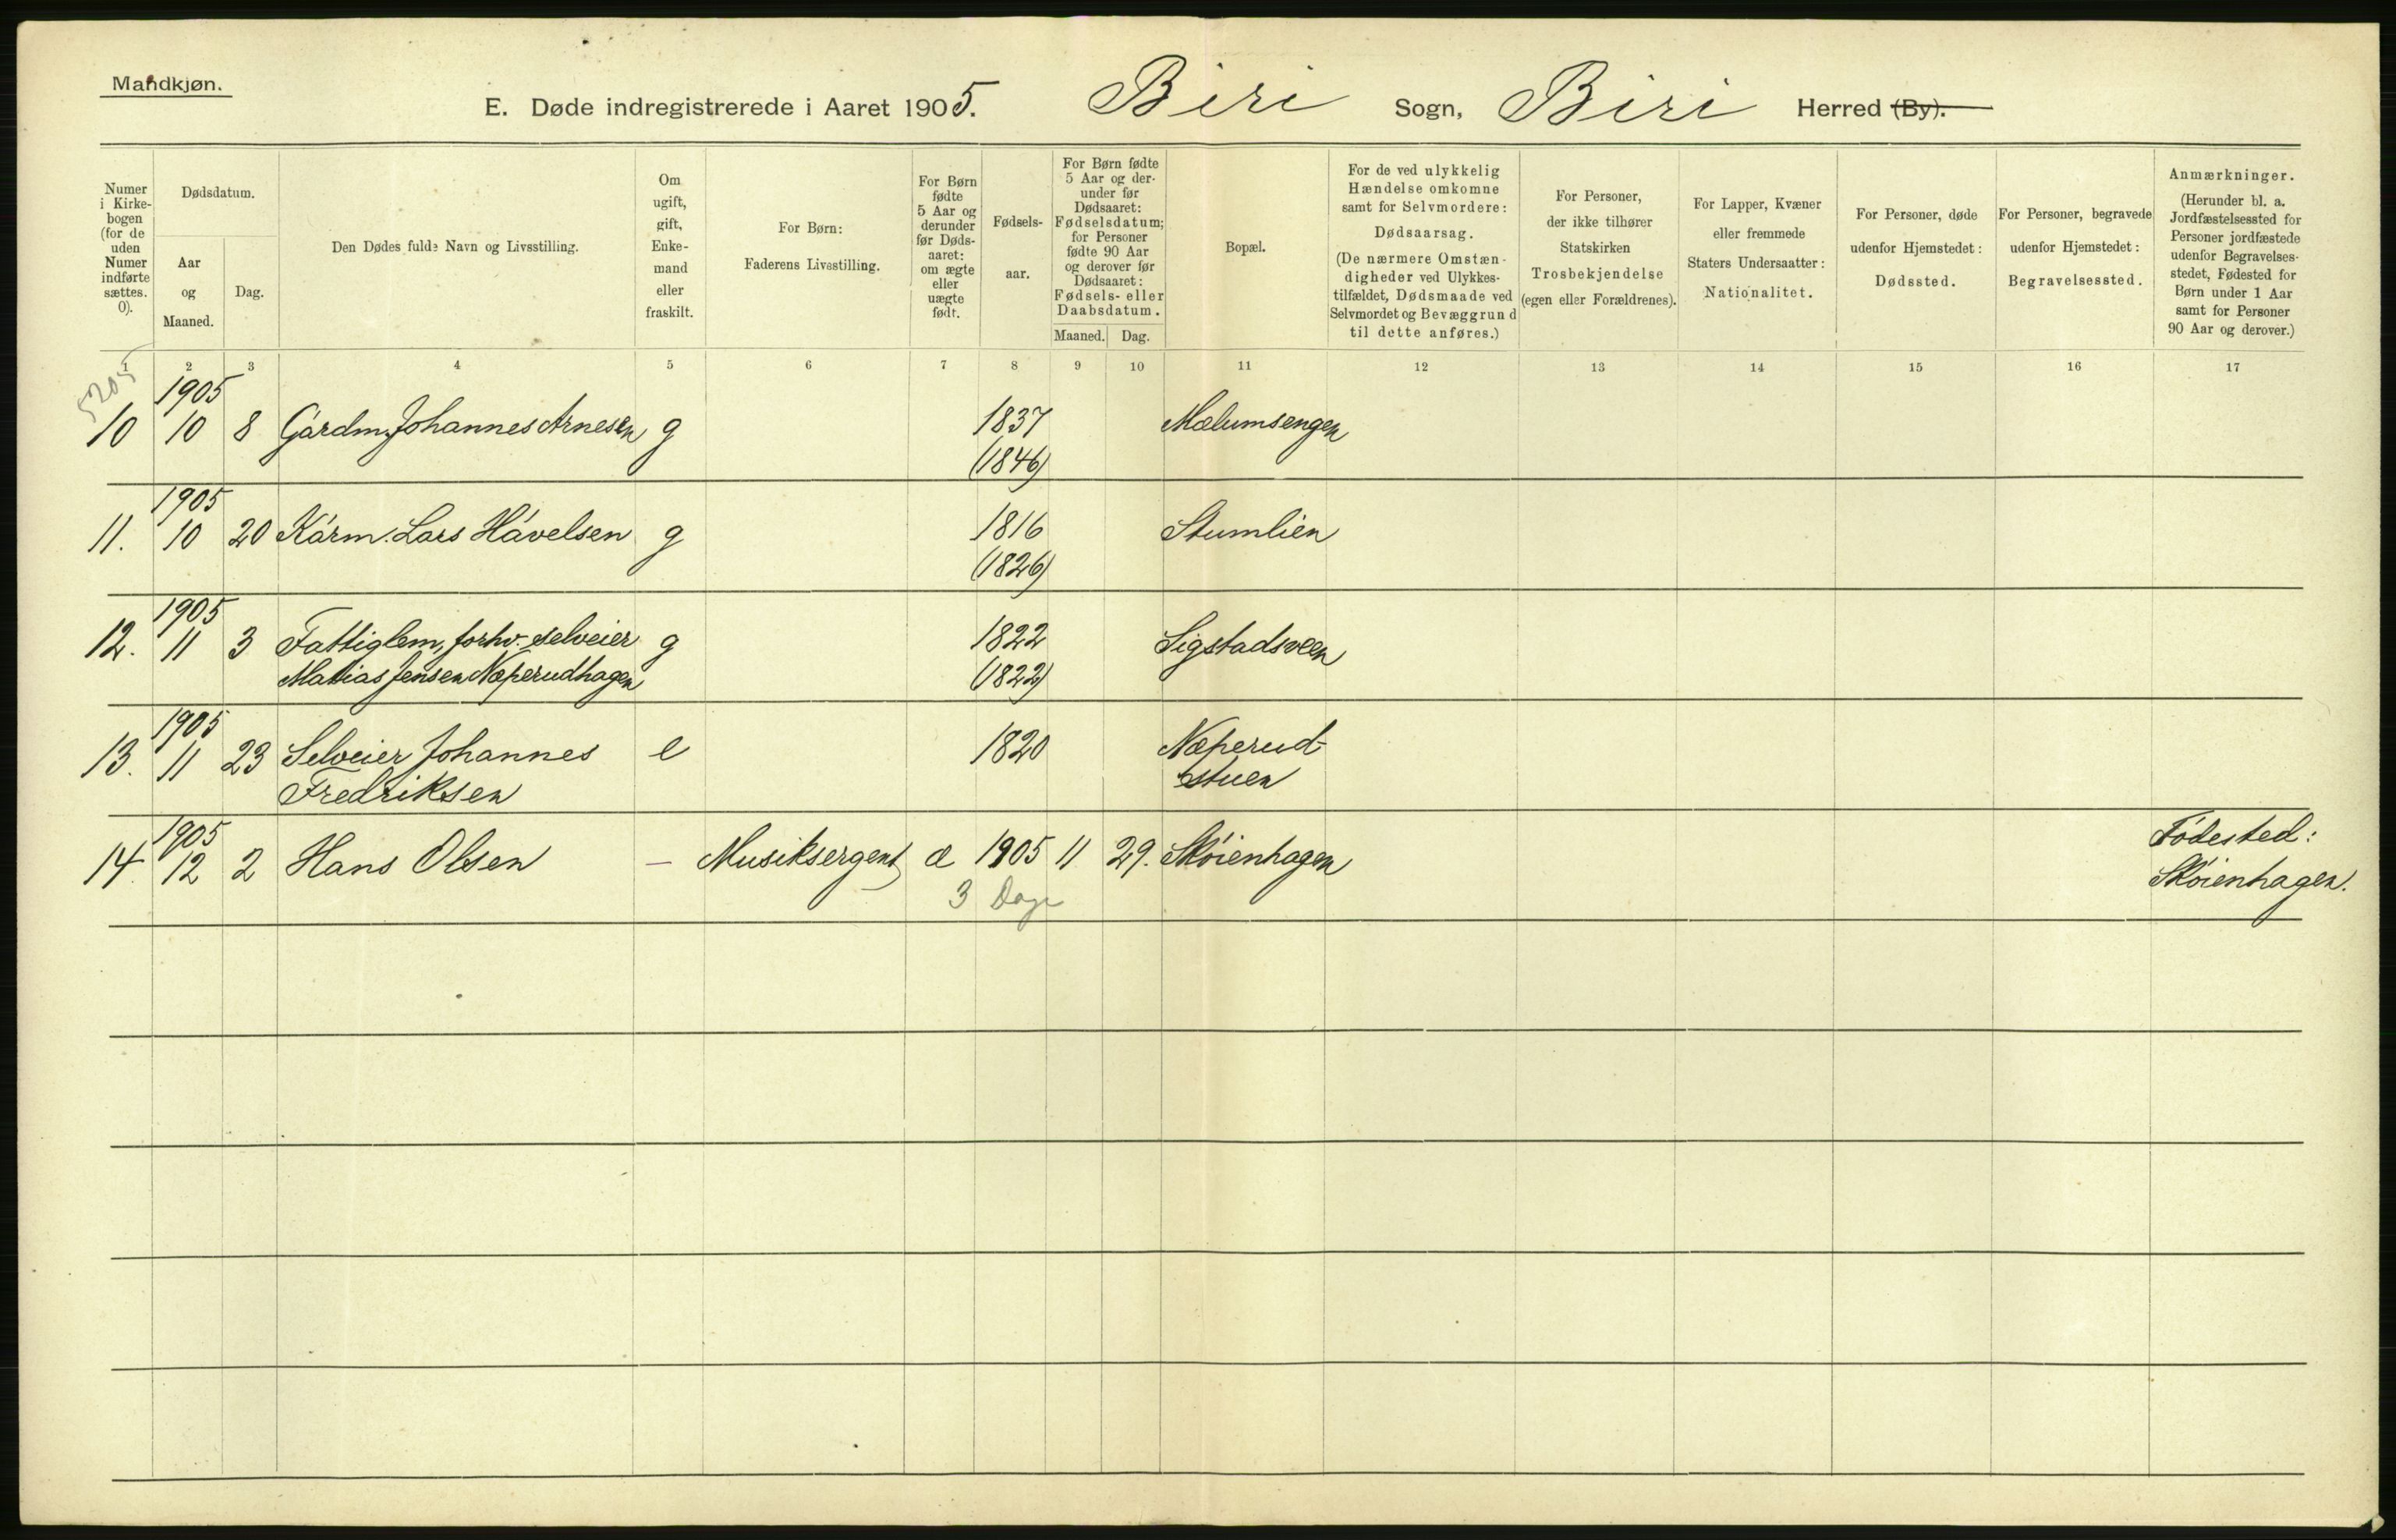 Mandkjøn.
E. Døde indregistrerede i Aaret 1905. Biri Sogn, Biri Herred (By).
Numer i Kirke-bogen (for de uden Numer indførte sættes. 0).
Dødsdatum.
Aar og Maaned.
Dag.
Den Dødes fulde Navn og Livsstilling.
Om ugift, gift, Enke-mand eller fraskilt.
For Børn: Faderens Livsstilling.
For Børn fødte 5 Aar og derunder før Døds-aaret: om ægte eller uægte født.
Fødsels-aar.
For Børn fødte 5 Aar og der-under før Dødsaaret: Fødselsdatum; for Personer fødte 90 Aar og derover før Dødsaaret: Fødsels- eller Daabsdatum.
Maaned. Dag.
Bopæl.
For de ved ulykkelig Hændelse omkomne samt for Selvmordere: Dødsaarsag. (De nærmere Omstæn-digheder ved Ulykkes-tilfældet, Dødsmaade ved Selvmordet og Bevæggrund til dette anføres.)
For Personer, der ikke tilhører Statskirken Trosbekjendelse (egen eller Forældrenes).
For Lapper, Kvæner eller fremmede Staters Undersaatter: Nationalitet.
For Personer, døde udenfor Hjemstedet: Dødssted.
For Personer, begravede udenfor Hjemstedet: Begravelsessted.
Anmærkninger. (Herunder bl. a. Jordfæstelsessted for Personer jordfæstede udenfor Begravelses-stedet, Fødested for Børn under 1 Aar samt for Personer 90 Aar og derover.)
1 2 3 4 5 6 7 8 9 10 11 12 13 14 15 16 17
5205
1905
10 10 8 Gårdm. Johannes Arnesen g 1837 Mælumsengen
(1846)
1905
11. 10 20 Kårm. Lars Håvelsen g 1816 Stumlien
(1826)
1905
12. 11 3 Fattiglem, forhv. selveier g 1822 Sigstadsveen
Matias Jensen Næperudhagen (1822)
1905
13. 11 23 Selveier Johannes e 1820 Næperud-
Fredriksen stuen
1905 Fødested:
14. 12 2 Hans Olsen — Musiksergent æ 1905 11 29. Skøienhagen Skøienhagen.
3 Dage